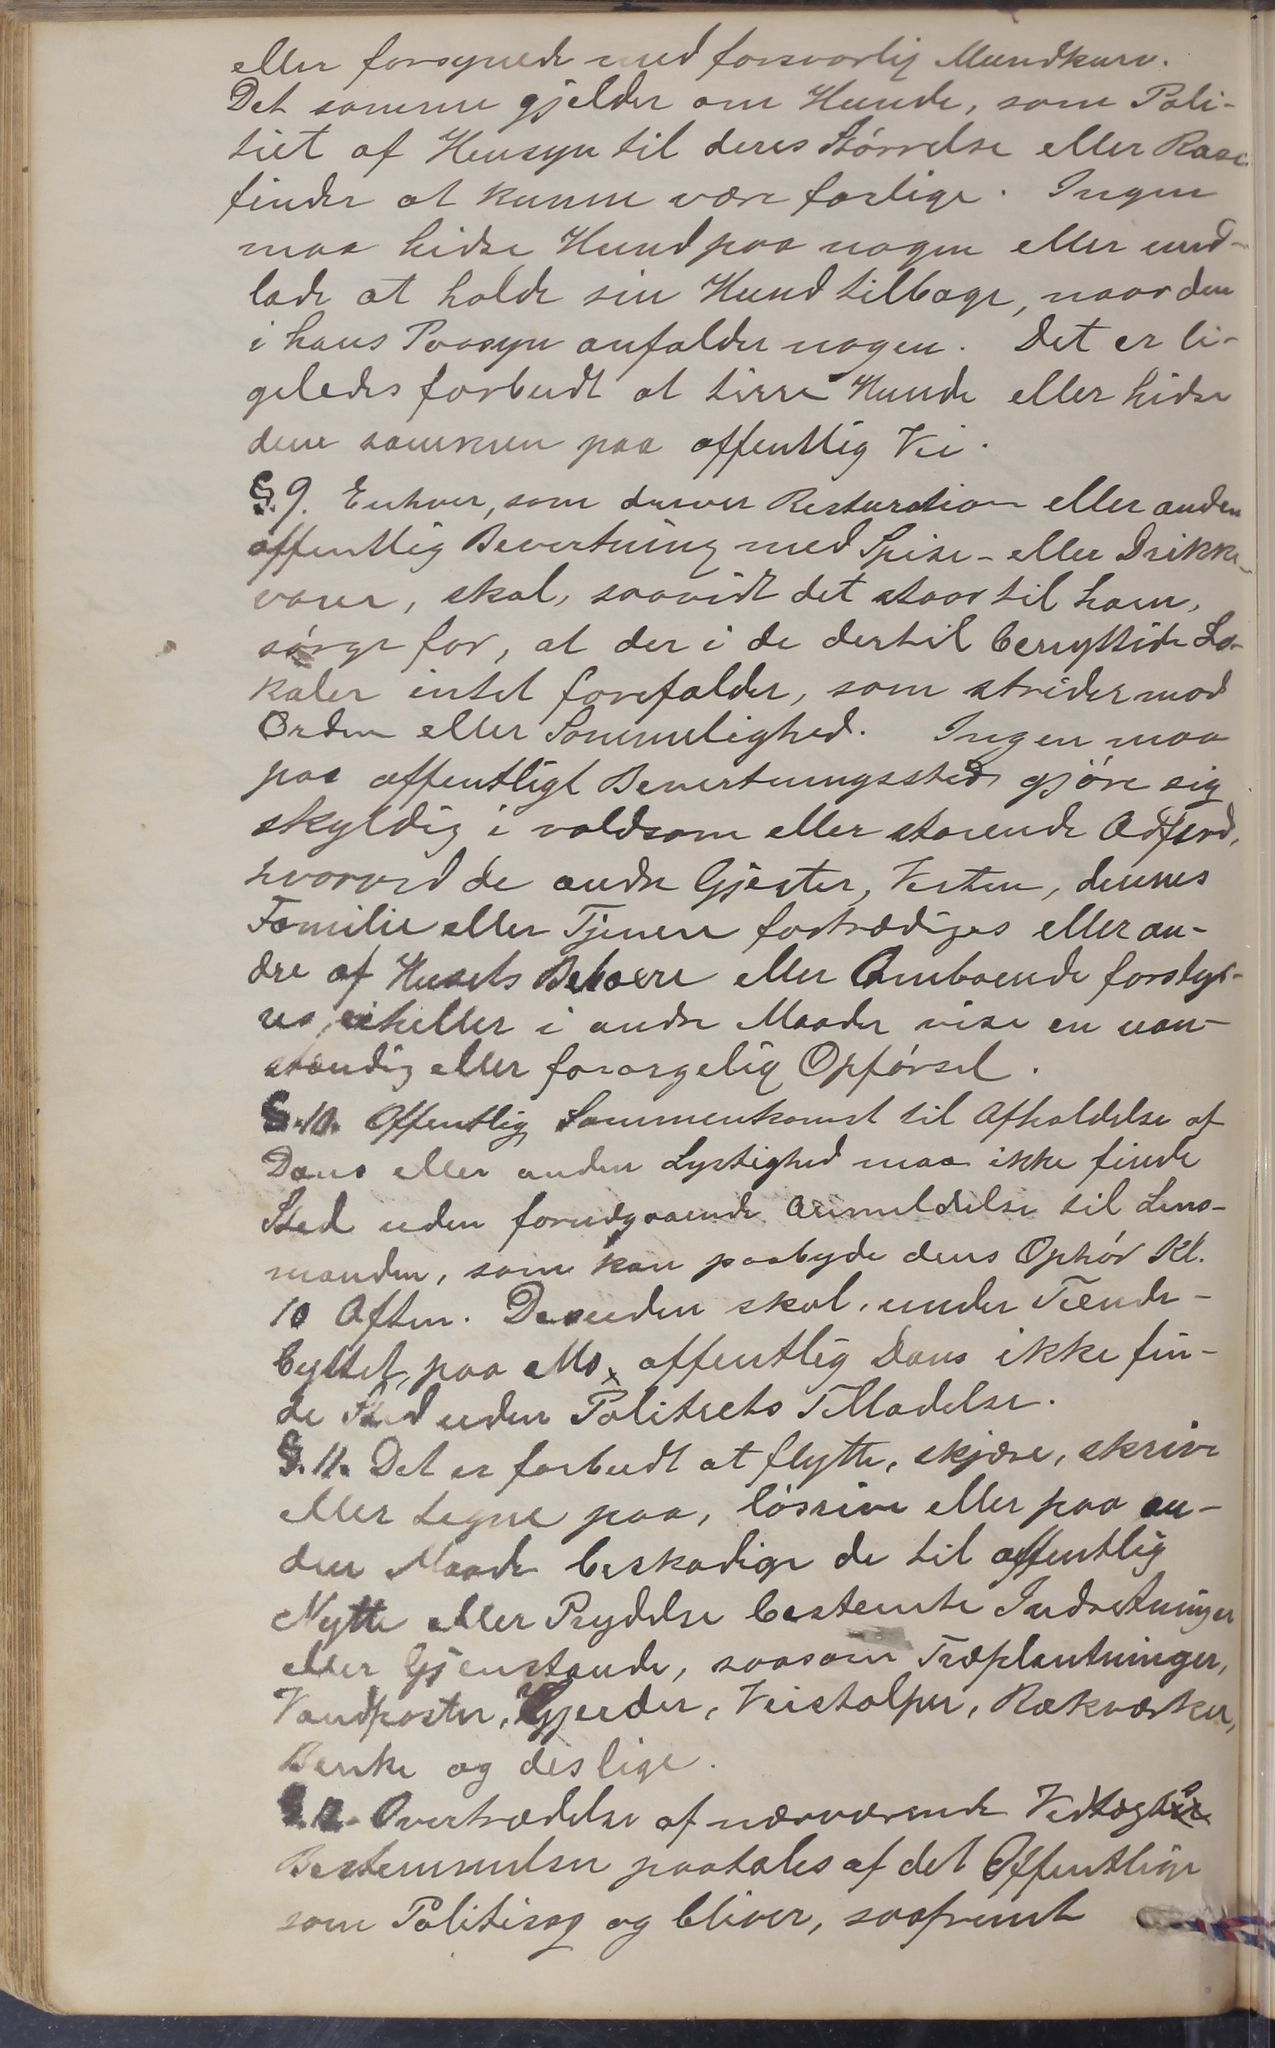 eller forsynede med forsvarlig Mundkurv.
Det samme gjelder om Hunde, som Poli-
tiet af Hensyn til deres Størrelse eller Rase
finder at kunne være farlige. Ingen
maa hidse Hund paa nogen eller und-
lade at holde sin Hund tilbage, naar den
i hans Paasyn anfalder nogen. Det er li-
geledes forbudt at tirre Hunde eller hidse
dem sammen paa offentlig Vei.
§.9. Enhver, som driver Resturation eller anden
offentlig Bevertning med Spise- eller Drikke-
varer, skal, saavidt det staar til ham,
sørge for, at der i de dertil benyttede Lo-
kaler intet forefalder, som strider mod
Orden eller Sømmelighed. Ingen maa
paa offentligt Bevertningssted gjøre sig
skyldig i voldsom eller støiende Adferd,
hvorved de andre Gjester, Verten, dennes
Familie eller Tjenere fortrædiges eller an-
dre af Husets Beboere eller Omboende forstyr-
res, eiheller i andre Maader vise en uan-
stændig eller forargelig Opførsel.
§.10. Offentlig Sammenkomst til Afholdelse af
Dans eller anden Lystighed maa ikke finde
Sted uden forudgaaende Anmeldelse til Lens-
manden, som kan paabyde dens Ophør Kl.
10 Aften. Desuden skal, under Tiende-
byttet, paa Mo, offentlig Dans ikke fin-
de Sted uden Politiets Tilladelse.
§.11. Det er forbudt at flytte, skjære, skrive
eller tegne paa, løsrive eller paa an-
den Maade beskadige de til offentlig
Nytte eller Prydelse bestemte Indretninger
eller Gjenstande, saasom Træplantninger,
Vandposter, Gjerder, Veistolper, Rækværker,
Benke og deslige.
§.12. Overtrædelse af nærværende Vedtægts
Bestemmelser paatales af det Offentlige
som Politisag og bliver, saafremt